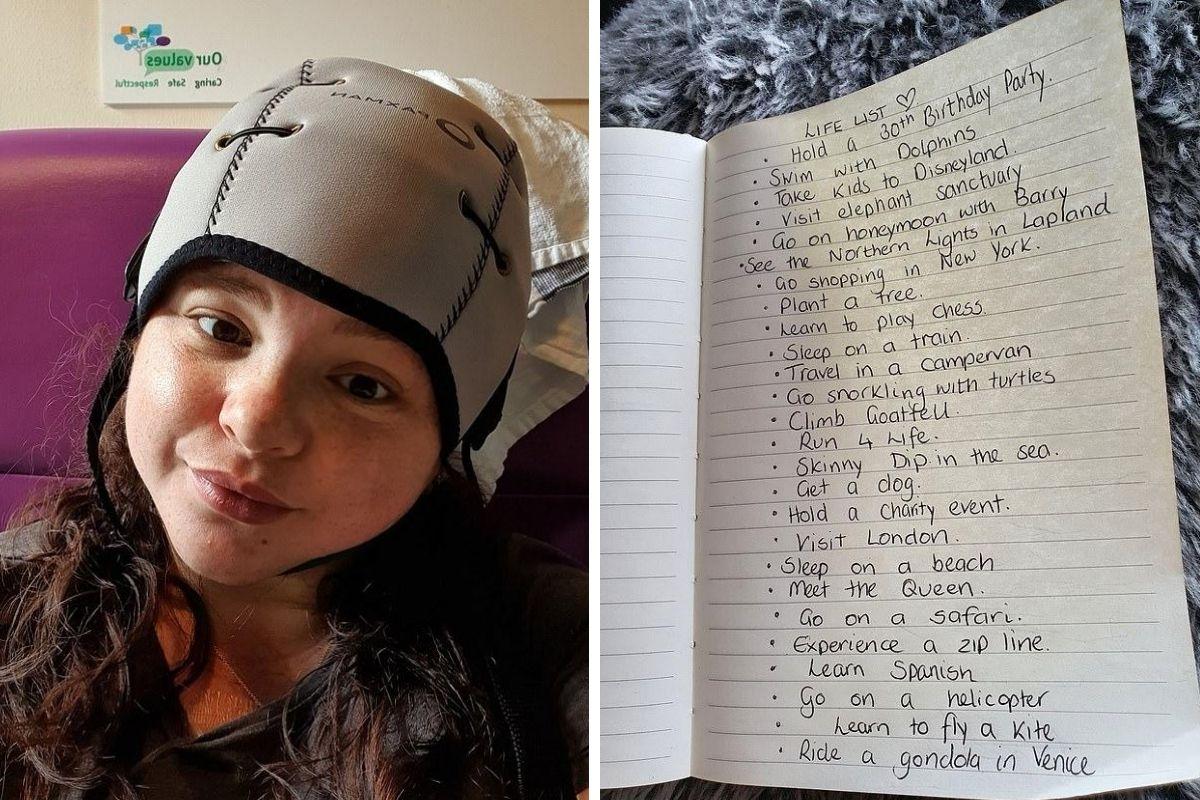 Our values
Caring Safe Respectful
PAXMAN
LIFE LIST ♡
• Hold a 30th Birthday Party.
• Swim with Dolphins
• Take Kids to Disneyland.
• Visit elephant sanctuary
• Go on honeymoon with Barry
• See the Northern Lights in Lapland
• Go shopping in New York.
• Plant a tree.
• Learn to play chess.
• Sleep on a train.
• Travel in a campervan
• Go snorkling with turtles
• Climb Goatfell.
• Run 4 Life.
• Skinny Dip in the sea.
• Get a dog.
• Hold a charity event.
• Visit London.
• Sleep on a beach
• Meet the Queen.
• Go on a safari.
• Experience a zip line.
• Learn Spanish
• Go on a helicopter
• Learn to fly a kite
• Ride a gondola in Venice